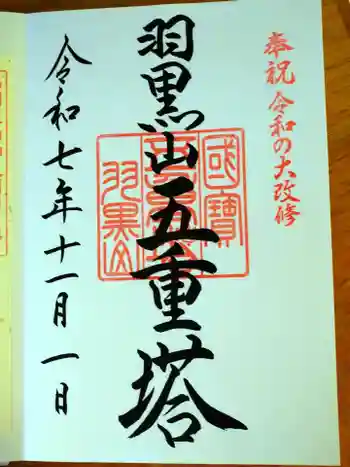 奉祝 令和の大改修
羽黒山五重塔
國寶
羽黒山
令和七年十一月一日